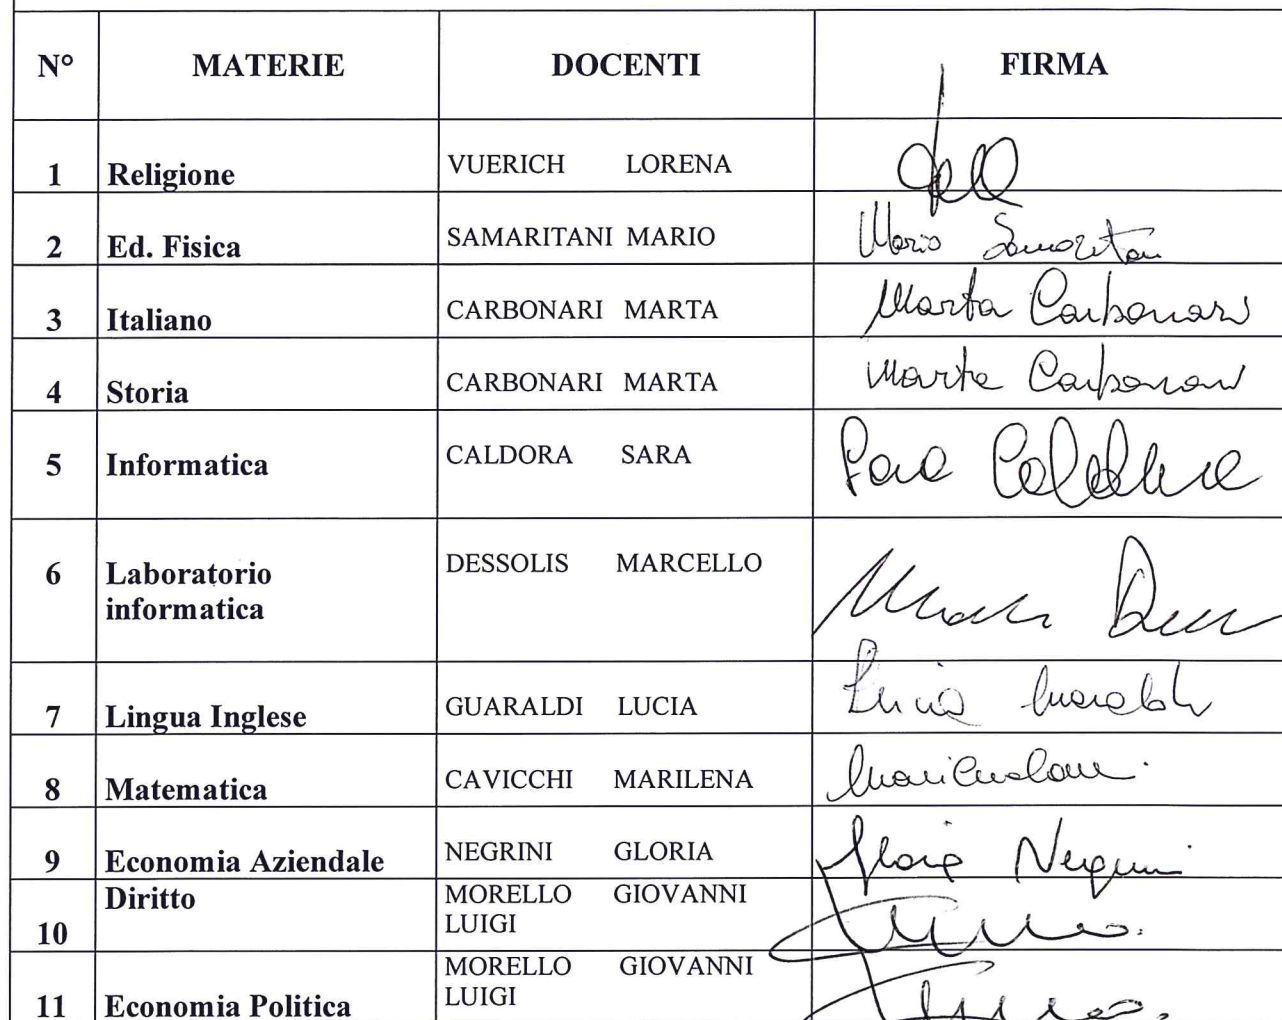 N° MATERIE DOCENTI FIRMA
1 Religione VUERICH LORENA
2 Ed. Fisica SAMARITANI MARIO Mario Samaritani
3 Italiano CARBONARI MARTA Marta Carbonari
4 Storia CARBONARI MARTA Marta Carbonari
5 Informatica CALDORA SARA Sara Caldora
6 Laboratorio informatica DESSOLIS MARCELLO
7 Lingua Inglese GUARALDI LUCIA Lucia Guaraldi
8 Matematica CAVICCHI MARILENA
9 Economia Aziendale NEGRINI GLORIA Gloria Negrini
10 Diritto MORELLO GIOVANNI LUIGI
11 Economia Politica MORELLO GIOVANNI LUIGI